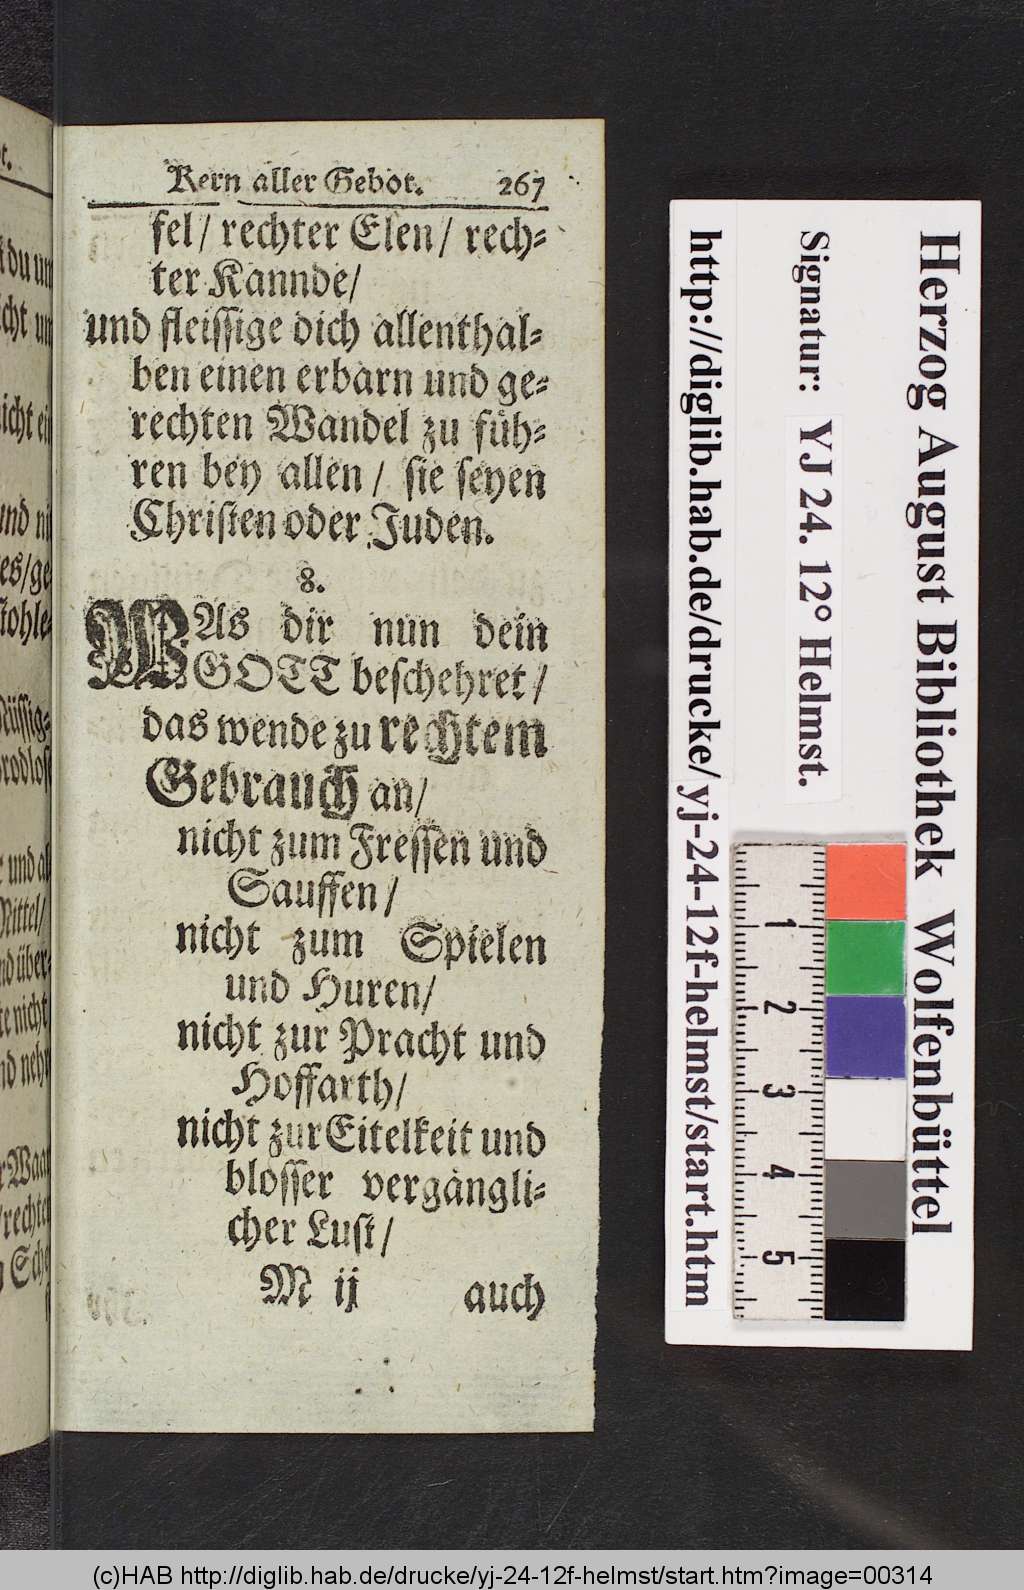 Kern aller Gebot. 267
fel/ rechter Elen/ rech-
ter Kannde/
und fleissige dich allenthal-
ben einen erbarn und ge-
rechten Wandel zu füh-
ren bey allen/ sie seyen
Christen oder Juden.
8.
WAs dir nun dein
GOTT beschehret/
das wende zu rechtem
Gebrauch an/
nicht zum Fressen und
Sauffen/
nicht zum Spielen
und Huren/
nicht zur Pracht und
Hoffarth/
nicht zur Eitelkeit und
blosser vergängli-
cher Lust/
M ij auch
Herzog August Bibliothek Wolfenbüttel
Signatur: YJ 24. 12° Helmst.
http://diglib.hab.de/drucke/yj-24-12f-helmst/start.htm
1
2
3
4
5
(c)HAB http://diglib.hab.de/drucke/yj-24-12f-helmst/start.htm?image=00314